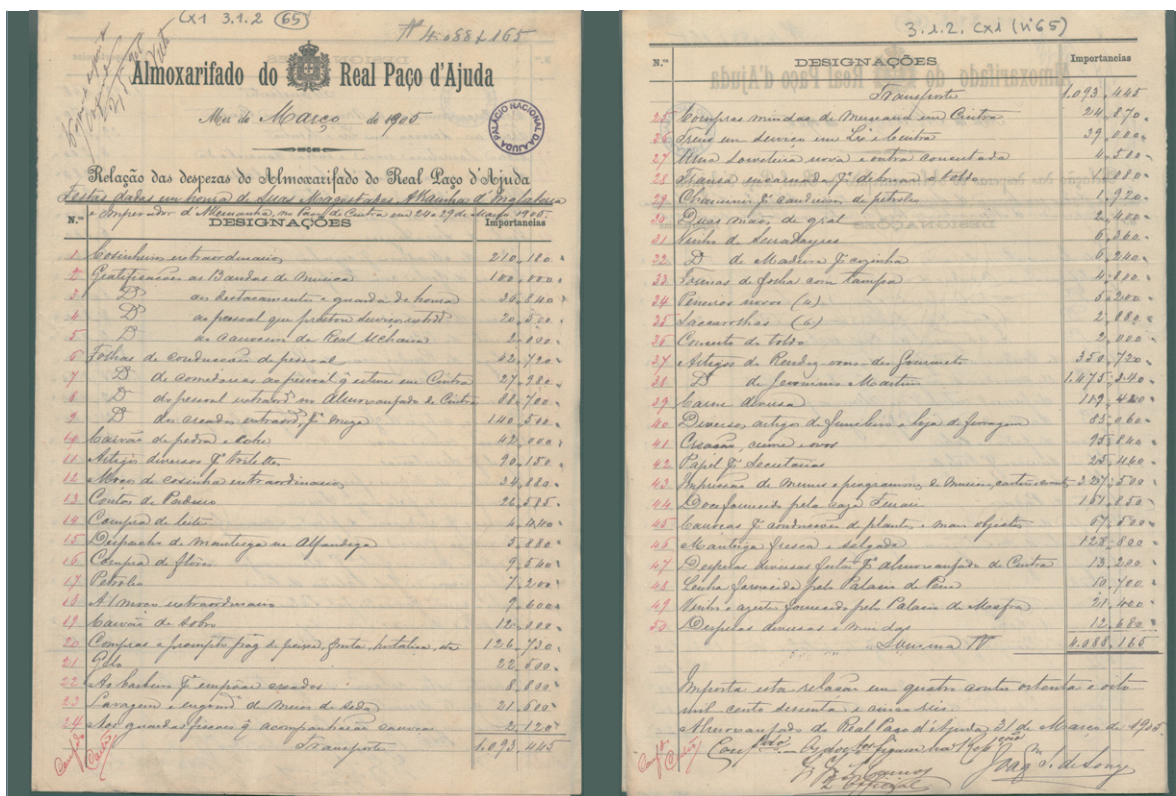 CX1 3.1.2 (65)
4.088$165
Almoxarifado do Real Paço d'Ajuda
Mez de Março de 1905
PALACIO NACIONAL DA AJUDA
Relação das despezas do Almoxarifado do Real Paço d'Ajuda
Festas dadas em honra de Suas Magestades A Rainha d'Inglaterra
e Imperador d'Allemanha, no Paço de Cintra em 24 e 29 de Março 1905.
N.os DESIGNAÇÕES Importancias
1 Cosinheiros extraordinarios 210.180
2 Gratificações as Bandas de Musica 100.000
3 D.o aos destacamentos e guarda de honra
4 D.o ao pessoal que prestou serviço 20.500
5 D.o da Real Ucharia 2.000
6 Folhas de conducção de pessoal 42.720
7 D.o de comedorias ao pessoal q esteve em Cintra 27.980
8 D.o do pessoal extraord no Almoxarifado de Cintra 88.700
9 D.o dos creados extraord, p.a meza 140.500
10 Carvão de pedra e coke 42.000
11 Artigos diversos p.a toilettes 90.150
12 Moços de cosinha extraordinarios 34.880
13 Contos de 26.585
14 Compra de leite 4.440
15 Despacho de manteiga na Alfandega 5.880
16 Compra de flôres 9.540
17 Petroleo 7.200
18 A 1 moço extraordinario 9.600
19 Carvão de sobro 12.000
20 Compras a prompto pag de peixe, fruta, hortaliça, etc 126.730
21 Gelo 22.500
22 Ao barbeiro p.a empoar creados 8.800
23 Lavagem e engomd de meias de seda 21.600
24 Aos guardas fiscaes q acompanharão 2.120
Transporte 1.093.445
Conferido
3.1.2. CX1 (nº65)
N.os DESIGNAÇÕES Importancias
Transporte 1.093.445
25 Compras miudas de em Cintra 24.870
26 Trens em serviço em Lx.a e Cintra 39.000
27 Uma sorveteira nova e outra concertada 4.500
28 p.a debruar o toldo 1.080
29 Chaminés p.a candieiros de petroleo 1.920
30 Duas mãos de gral 2.400
31 Vinho de 6.360
32 D.o de Madeira p.a cozinha 6.240
33 Formas de folha com tampa 4.800
34 Peneiros novos (4) 5.200
35 Saccarolhas (6) 2.880
36 Concerto do toldo 2.000
37 Artigos de Rendez-vous des Gourmets 350.720
38 D.o de Jeronimo Martins 1.475.340
39 Carne diversa
40 Diversos artigos de funileiro e loja de ferragem 85.060
41 Creação, carne e ovos 95.840
42 Papel p.a Secretarias 25.460
43 Impressão de Menus e programmas de Musica, 327.500
44 Doce fornecido pela casa Ferrari 167.850
45 p.a conducção de plantas e mais objectos 67.500
46 Manteiga fresca e salgada 128.800
47 Despezas diversas feitas p.o almoxarifado de Cintra 13.200
48 Lenha fornecida pelo Palacio da Pena 10.700
49 Vinho e azeite fornecido pelo Palacio de Mafra 21.400
50 Despezas diversas e miudas 12.680
Somma 4.088.165
Importa esta relação em quatro contos oitenta e oito
mil cento sessenta e cinco reis.
Almoxarifado do Real Paço d'Ajuda 31 de Março de 1905
2º Official